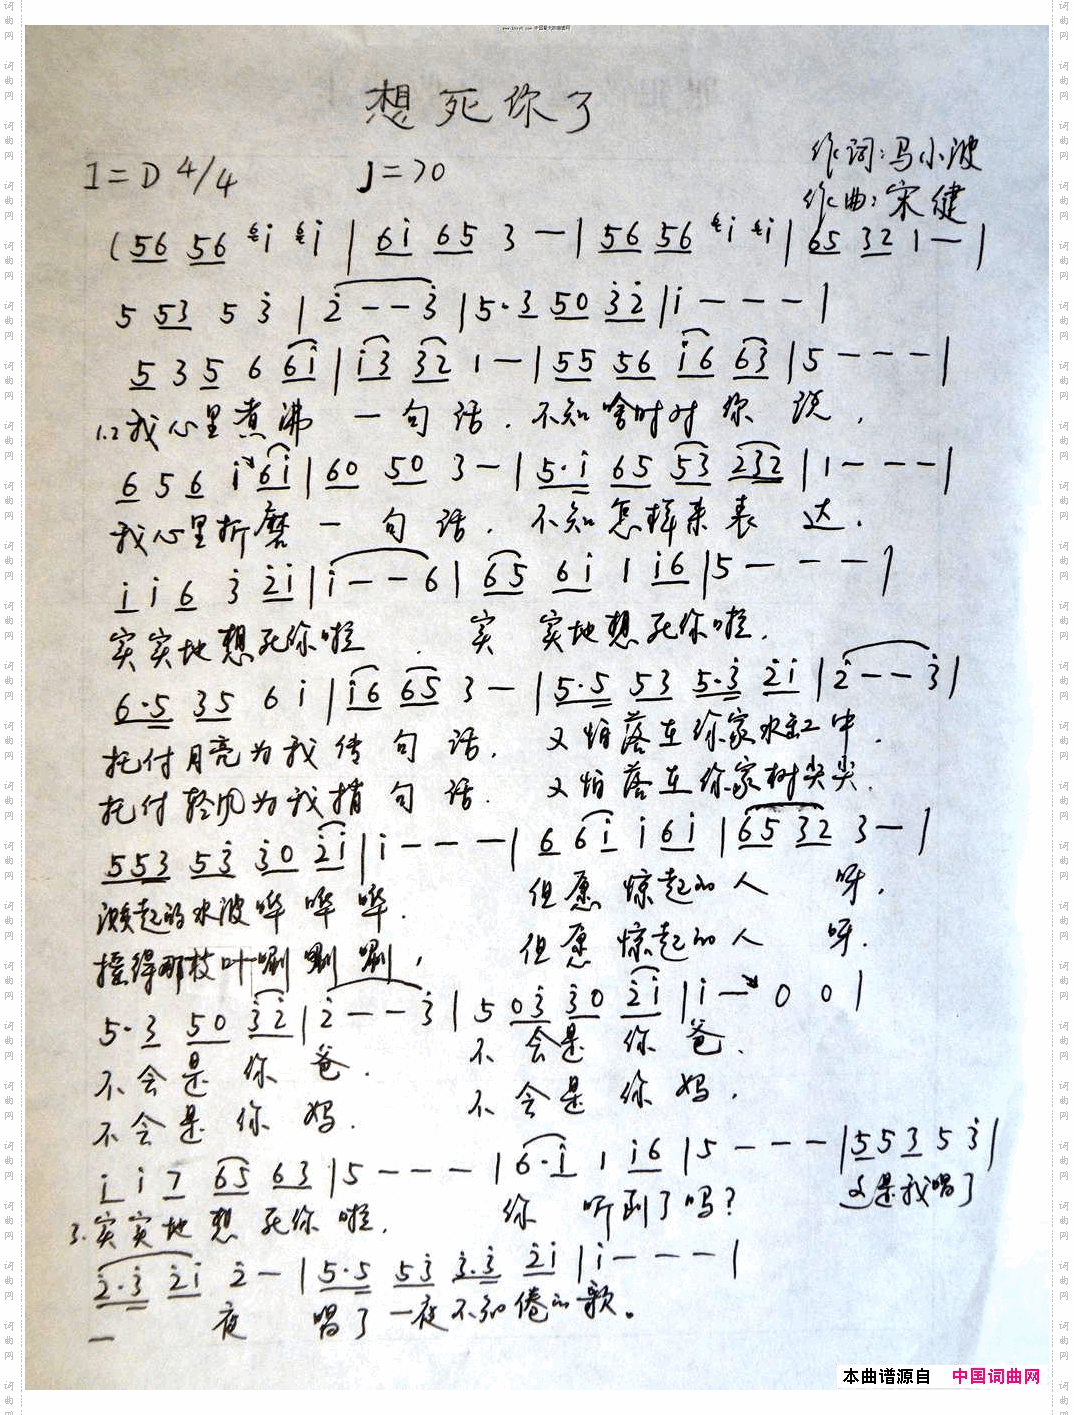 想死你了
1=D 4/4 ♩=70
作词:马小波
作曲:宋健
(56 56 i i | 6i 65 3 — | 56 56 i i | 65 32 1 — |
5 53 5 3 | 2 - - 3 | 5·3 50 32 | i - - - |
5 3 5 6 6i | i3 32 1 — | 55 56 i6 63 | 5 - - - |
1.2我心里煮沸 一句话. 不知啥时对你说.
6 5 6 i 6i | 60 50 3 — | 5·i 65 53 232 | 1 - - - |
我心里折磨一句话. 不知怎样来表达.
i i 6 3 2i | i - - 6 | 65 6i 1 i6 | 5 - - - |
实实地想死你啦. 实实地想死你啦.
6·5 35 6 i | i6 65 3 — | 5·5 53 5·3 2i | 2 - - 3 |
托付月亮为我传句话. 又怕落在你家水缸中.
托付轻风为我捎句话. 又怕落在你家树尖尖.
553 53 30 2i | i - - - | 6 6i i 6i | 65 32 3 — |
溅起的水波哗哗哗. 但愿惊起的人呀.
摇得那枝叶唰唰唰, 但愿惊起的人呀.
5·3 50 32 | 2 - - 3 | 5 03 30 2i | i — 0 0 |
不会是你爸. 不会是你爸.
不会是你妈. 不会是你妈.
i i 7 65 63 | 5 - - - | 6·i 1 i6 | 5 - - - | 55 3 5 3 |
3.实实地想死你啦. 你听到了吗? 这是我唱了
2·3 2i 2 — | 5·5 53 3·3 2i | i - - - |
一夜 唱了一夜不知倦的歌。
本曲谱源自 中国词曲网